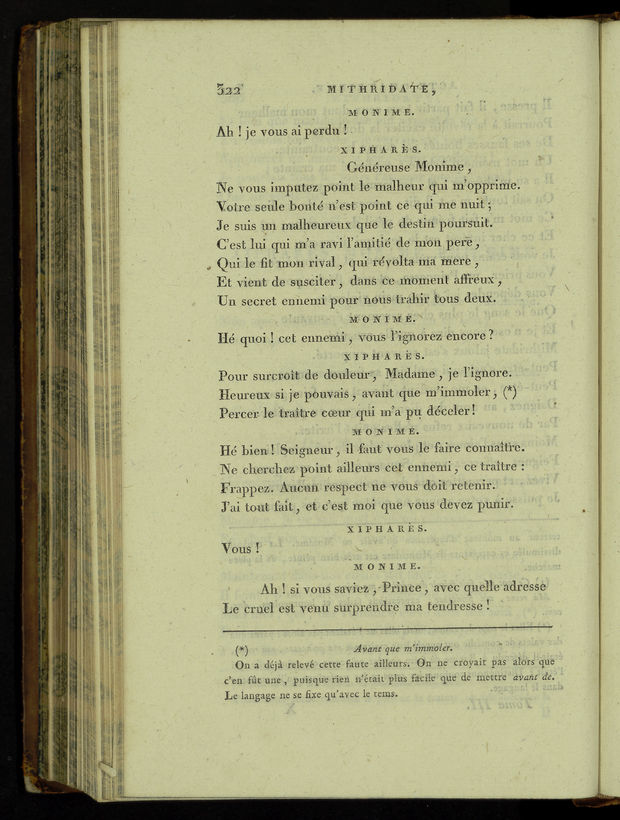 322 MITHRIDATE,
MONIME.
Ah ! je vous ai perdu !
XIPHARÈS.
Généreuse Monime ,
Ne vous imputez point le malheur qui m'opprime.
Votre seule bonté n'est point ce qui me nuit ;
Je suis un malheureux que le destin poursuit.
C'est lui qui m'a ravi l'amitié de mon pere ,
Qui le fit mon rival , qui révolta ma mere ,
Et vient de susciter , dans ce moment affreux ,
Un secret ennemi pour nous trahir tous deux.
MONIME.
Hé quoi ! cet ennemi , vous l'ignorez encore ?
XIPHARÈS.
Pour surcroît de douleur , Madame , je l'ignore.
Heureux si je pouvais , avant que m'immoler , (*)
Percer le traître cœur qui m'a pu déceler !
MONIME.
Hé bien ! Seigneur , il faut vous le faire connaître.
Ne cherchez point ailleurs cet ennemi , ce traître :
Frappez. Aucun respect ne vous doit retenir.
J'ai tout fait , et c'est moi que vous devez punir.
XIPHARÈS.
Vous !
MONIME.
Ah ! si vous saviez , Prince , avec quelle adresse
Le cruel est venu surprendre ma tendresse !
(*) Avant que m'immoler.
On a déjà relevé cette faute ailleurs. On ne croyait pas alors que
c'en fût une , puisque rien n'était plus facile que de mettre avant de.
Le langage ne se fixe qu'avec le tems.